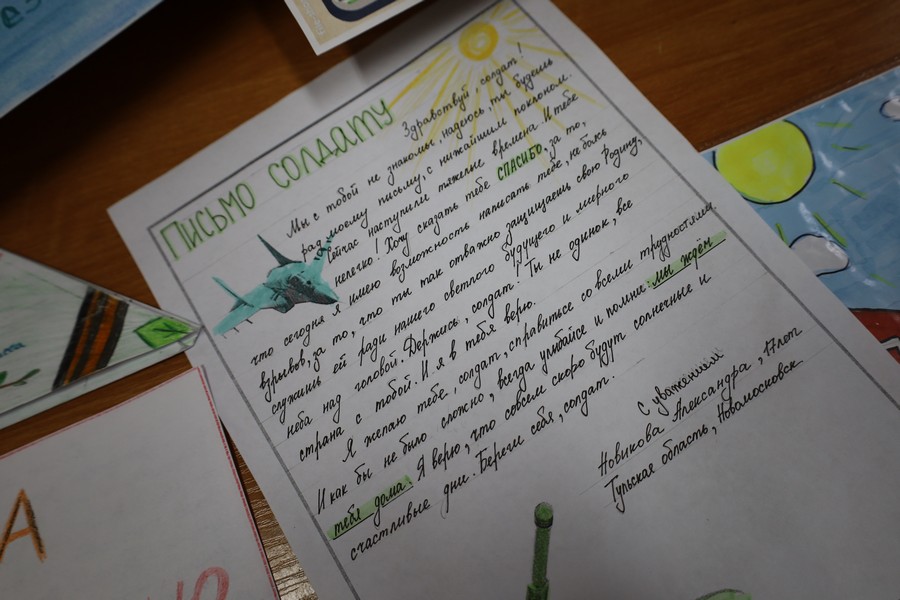 Письмо солдату
Здравствуй, солдат!
Мы с тобой не знакомы, надеюсь, ты будешь
рад моему письму, с нижайшим поклоном.
Сейчас наступили тяжелые времена. И тебе
нелегко! Хочу сказать тебе СПАСИБО за то,
что сегодня я имею возможность написать тебе, не боясь
взрывов, за то, что ты так отважно защищаешь свою Родину,
служишь ей ради нашего светлого будущего и мирного
неба над головой. Держись, солдат! Ты не одинок, все
страна с тобой. И я в тебя верю.
Я желаю тебе, солдат, справиться со всеми трудностями.
И как бы не было сложно, всегда улыбайся и помни: мы ждём
тебя дома. Я верю, что совсем скоро будут солнечные и
счастливые дни. Береги себя, солдат.
С уважением
Новикова Александра, 17 лет
Тульская область, Новомосковск
А